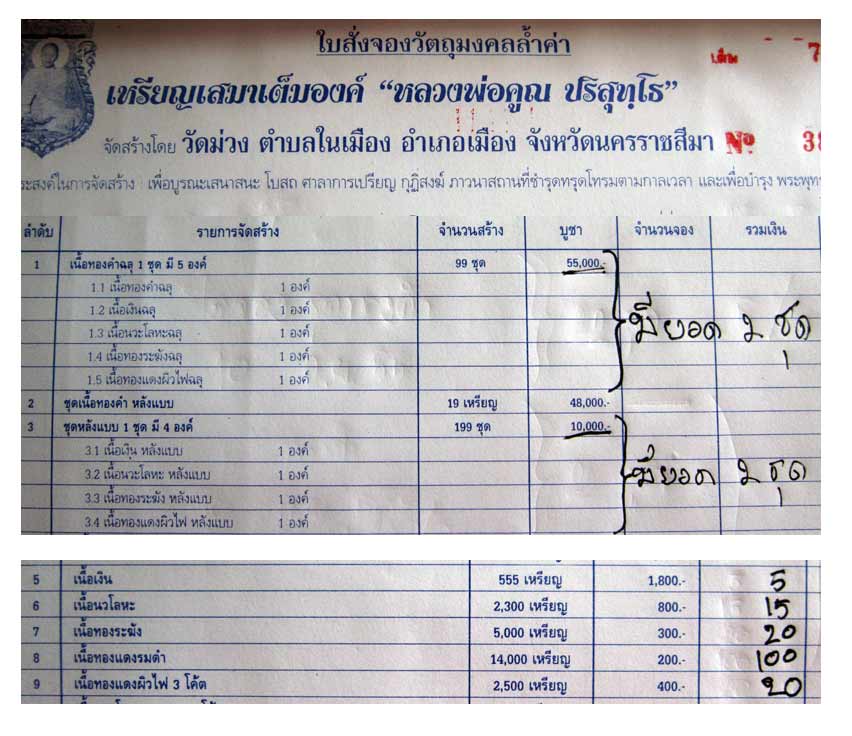 ใบสั่งจองวัตถุมงคลล้ำค่า
เล่มที่ 7
เหรียญเสมาเต็มองค์ “หลวงพ่อคูณ ปริสุทฺโธ”
จัดสร้างโดย วัดม่วง ตำบลในเมือง อำเภอเมือง จังหวัดนครราชสีมา Nº 38
ระสงค์ในการจัดสร้าง : เพื่อบูรณะเสนาสนะ โบสถ ศาลาการเปรียญ กุฏิสงฆ์ ภาวนาสถานที่ชำรุดทรุดโทรมตามกาลเวลา และเพื่อบำรุง พระพุทธ
ลำดับ รายการจัดสร้าง จำนวนสร้าง บูชา จำนวนจอง รวมเงิน
1 เนื้อทองคำฉลุ 1 ชุด มี 5 องค์ 99 ชุด 55,000.-
1.1 เนื้อทองคำฉลุ 1 องค์
1.2 เนื้อเงินฉลุ 1 องค์
1.3 เนื้อนวะโลหะฉลุ 1 องค์
มียอด 2 ชุด
1.4 เนื้อทองระฆังฉลุ 1 องค์
1.5 เนื้อทองแดงผิวไฟฉลุ 1 องค์
2 ชุดเนื้อทองคำ หลังแบบ 19 เหรียญ 48,000.-
3 ชุดหลังแบบ 1 ชุด มี 4 องค์ 199 ชุด 10,000.-
3.1 เนื้อเงิน หลังแบบ 1 องค์
3.2 เนื้อนวะโลหะ หลังแบบ 1 องค์ มียอด 2 ชุด
3.3 เนื้อทองระฆัง หลังแบบ 1 องค์
3.4 เนื้อทองแดงผิวไฟ หลังแบบ 1 องค์
5 เนื้อเงิน 555 เหรียญ 1,800.- 5
6 เนื้อนวโลหะ 2,300 เหรียญ 800.- 15
7 เนื้อทองระฆัง 5,000 เหรียญ 300.- 20
8 เนื้อทองแดงรมดำ 14,000 เหรียญ 200.- 100
9 เนื้อทองแดงผิวไฟ 3 โค้ต 2,500 เหรียญ 400.- 20